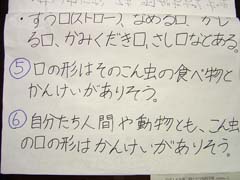 ・すう口(ストロー)、なめる口、かじ
る口、かみくだき口、さし口などある。
⑤ 口の形はそのこん虫の食べ物と
かんけいがありそう。
⑥ 自分たち人間や動物とも、こん虫
の口の形はかんけいがありそう。